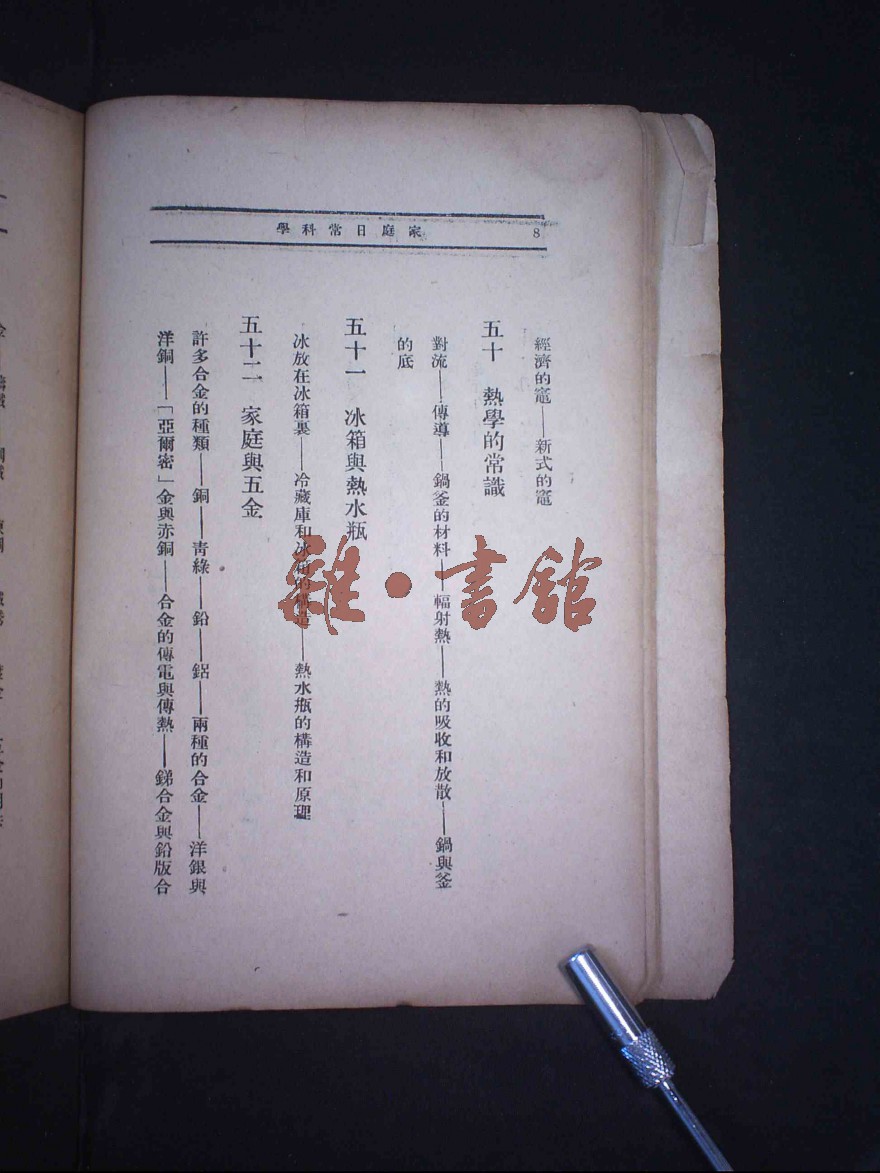 家庭日常科學
8
經濟的竈——新式的竈
五十　熱學的常識
對流——傳導——鍋釜的材料——輻射熱——熱的吸收和放散——鍋與釜
的底
五十一　冰箱與熱水瓶
冰放在冰箱裏——冷藏庫和冰箱的構造——熱水瓶的構造和原理
五十二　家庭與五金
許多合金的種類——銅——青綠——鉛——鋁——兩種的合金——洋銀與
洋銅——「亞爾密」金與赤銅——合金的傳電與傳熱——銻合金與鉛版合
雜·書館